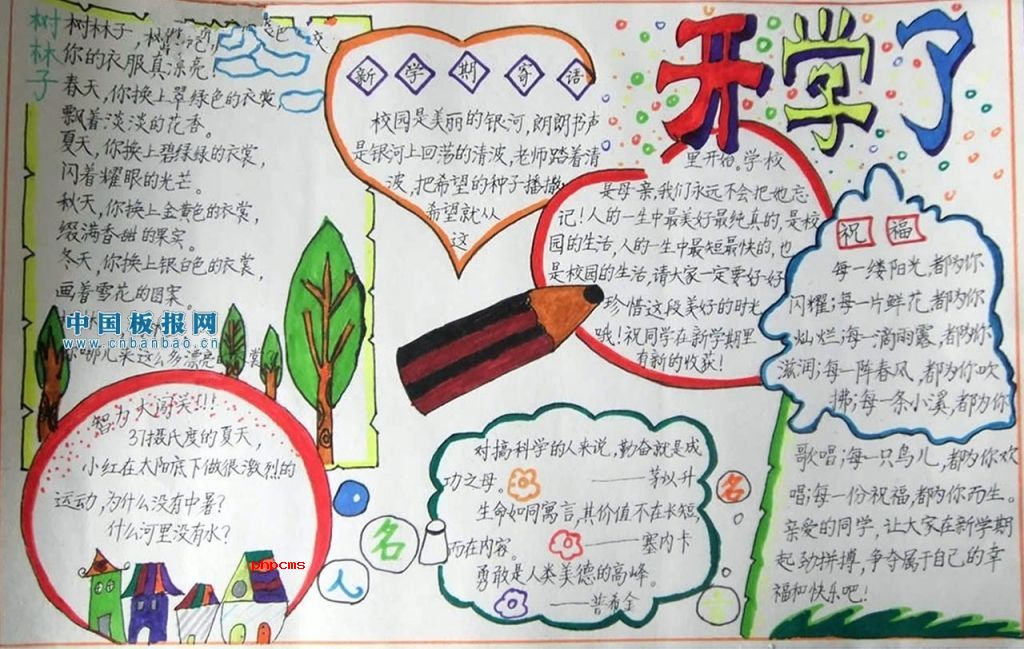 开学了
树林子
树林子,
你的衣服真漂亮!
春天,你换上翠绿色的衣裳,
飘着淡淡的花香。
夏天,你换上碧绿绿的衣裳,
闪着耀眼的光芒。
秋天,你换上金黄色的衣裳,
缀满香甜的果实。
冬天,你换上银白色的衣裳,
画着雪花的图案。
你哪儿来这么多漂亮的衣裳
中国板报网
www.cnbanbao.cn
新学期寄语
校园是美丽的银河,朗朗书声
是银河上回荡的清波,老师踏着清
波,把希望的种子播撒
希望就从
这
里开始。学校
是母亲,我们永远不会把他忘
记!人的一生中最美好最纯真的,是校
园的生活,人的一生中最短最快的,也
是校园的生活,请大家一定要好好
珍惜这段美好的时光
哦!祝同学在新学期里
有新的收获!
祝福
每一缕阳光,都为你
闪耀;每一片鲜花,都为你
灿烂;每一滴雨露,都为你
滋润;每一阵春风,都为你吹
拂;每一条小溪,都为你
歌唱;每一只鸟儿,都为你欢
唱;每一份祝福,都为你而生。
亲爱的同学,让大家在新学期
起劲拼搏,争夺属于自己的幸
福和快乐吧!
智力大闯关!!!
37摄氏度的夏天,
小红在太阳底下做很激烈的
运动,为什么没有中暑?
什么河里没有水?
phpcms
名人
对搞科学的人来说,勤奋就是成
功之母。——茅以升
生命如同寓言,其价值不在长短,
而在内容。——塞内卡
勇敢是人类美德的高峰。
——普希金
名
言